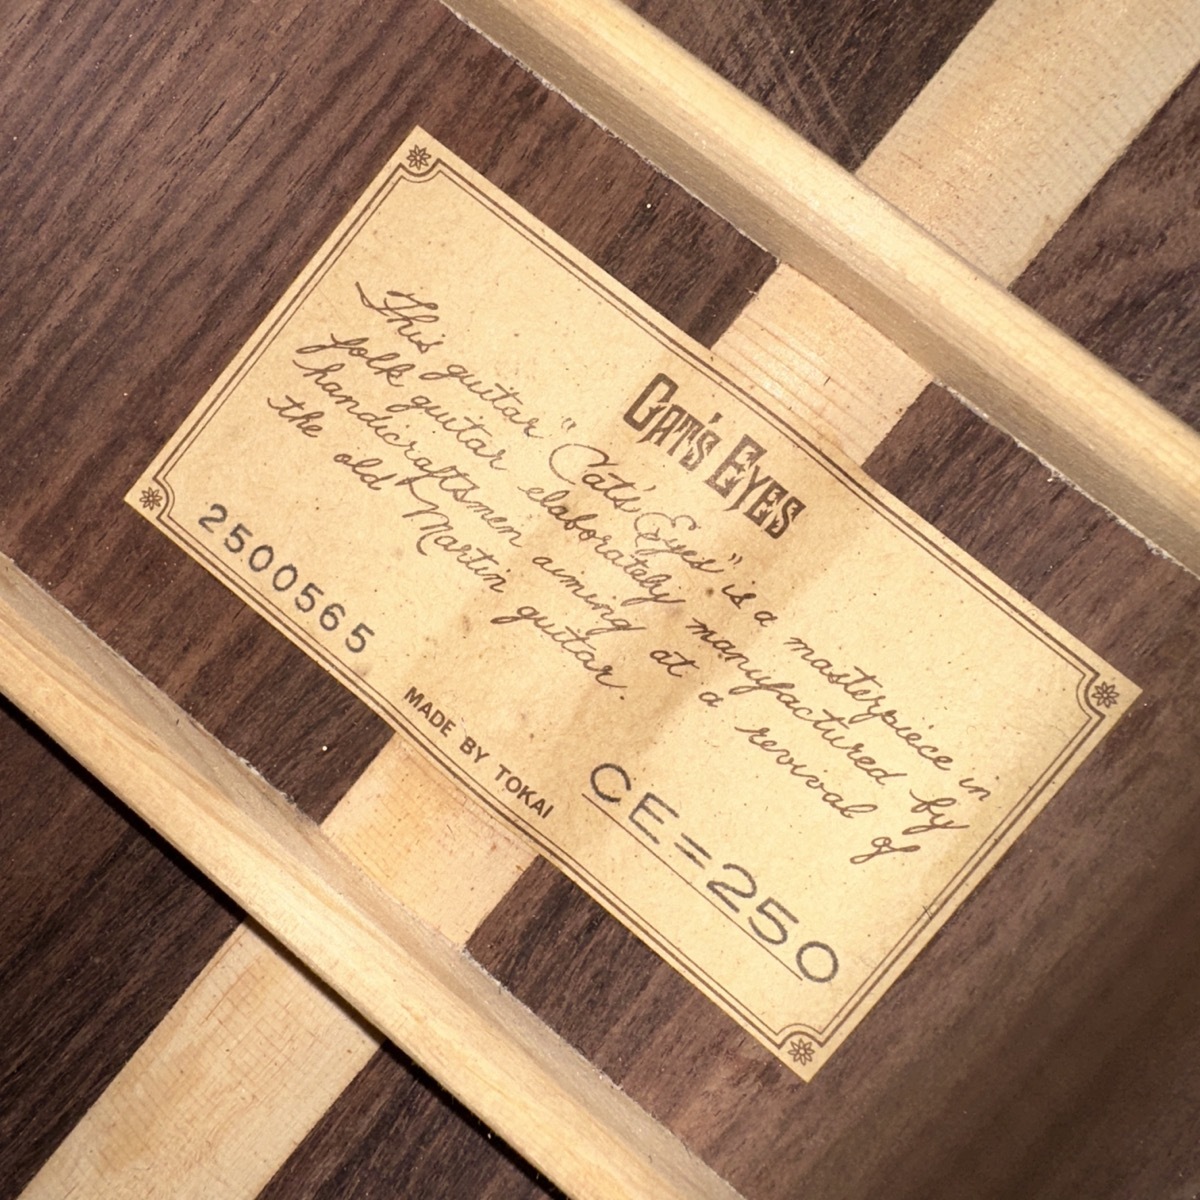 CAT'S EYES
This guitar "Cat's Eyes" is a masterpiece in
folk guitar elaborately manufactured by
handicraftsmen aiming at a revival of
the old Martin guitar.
2500565
CE=250
MADE BY TOKAI